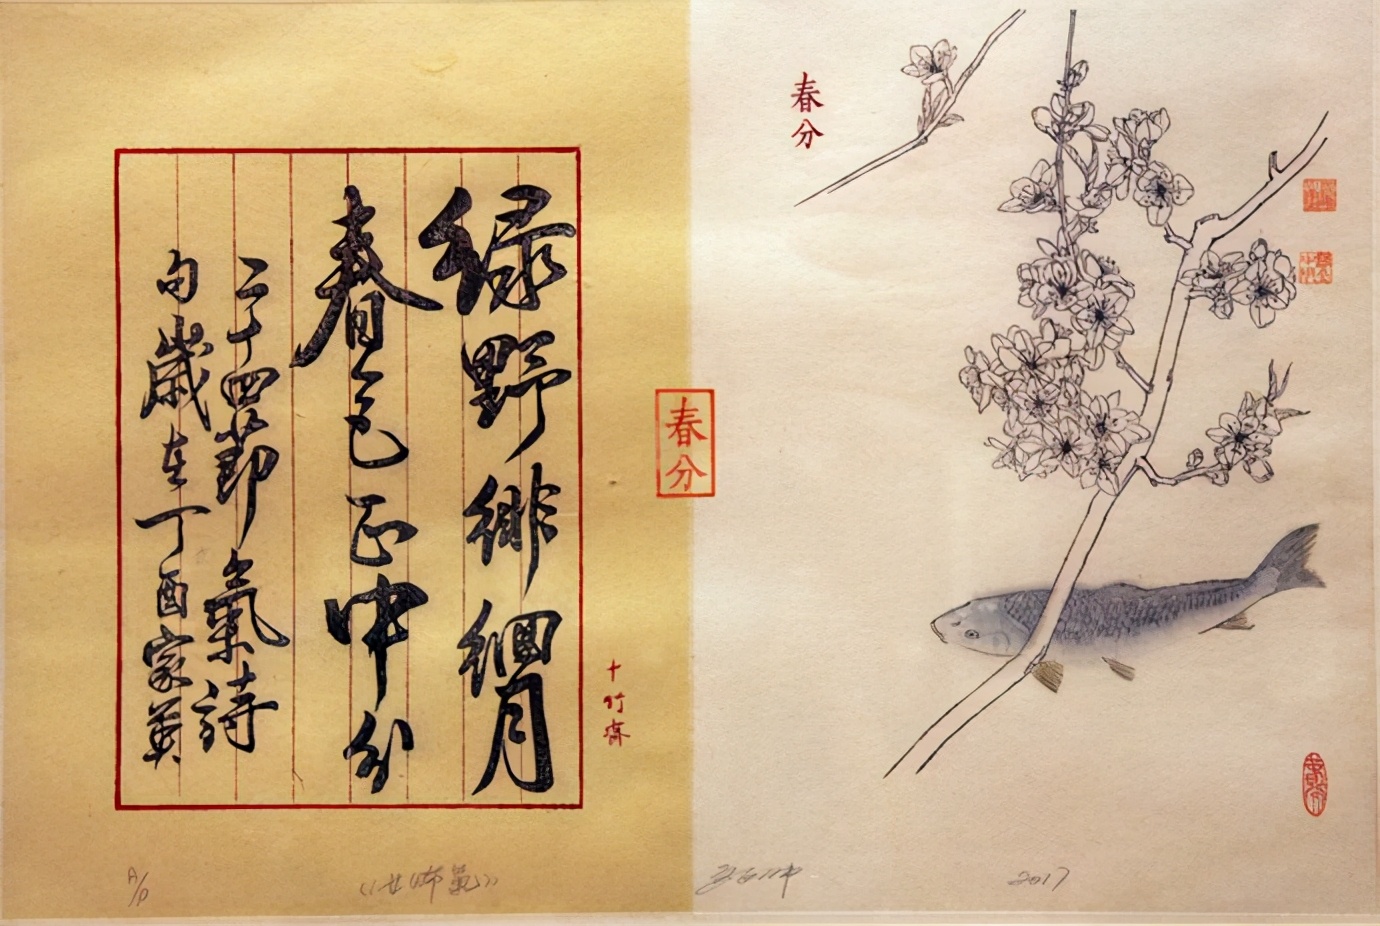 春分
绿野徘徊月
春色正中分
二十四節氣詩
句歲在丁酉家英
春分
十竹齋
A/P
《廿四节氣》
2017